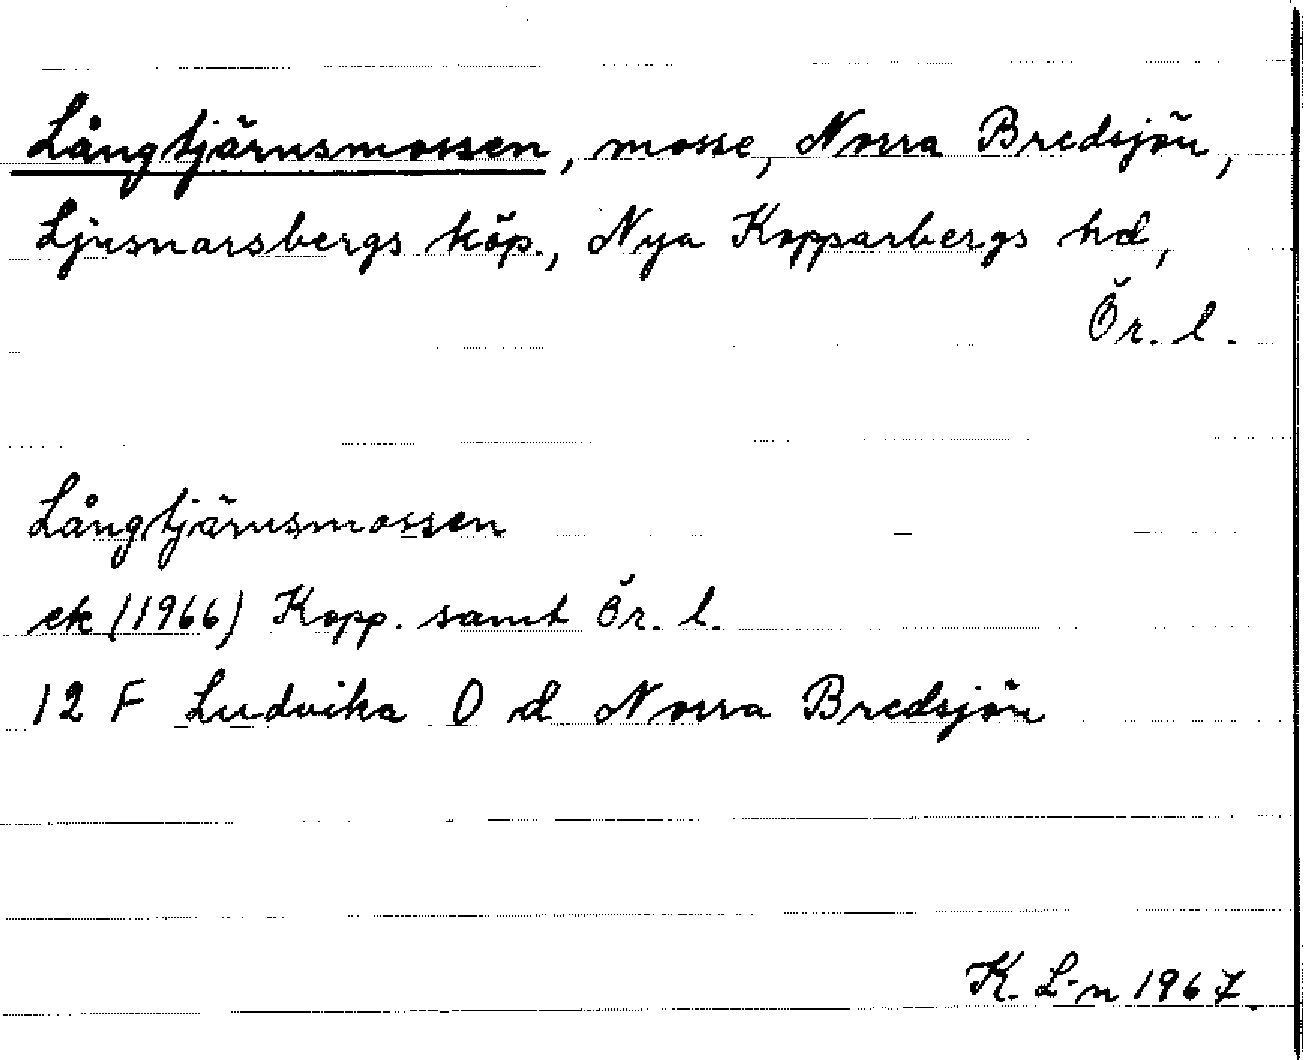 Långtjärnsmossen, mosse, Norra Bredsjön,
Ljusnarsbergs köp., Nya Kopparbergs hd,
Ör. l.
Långtjärnsmossen
ek (1966) Kopp. samt Ör. l.
12 F Ludvika 0 d Norra Bredsjön
K. L-n 1967.